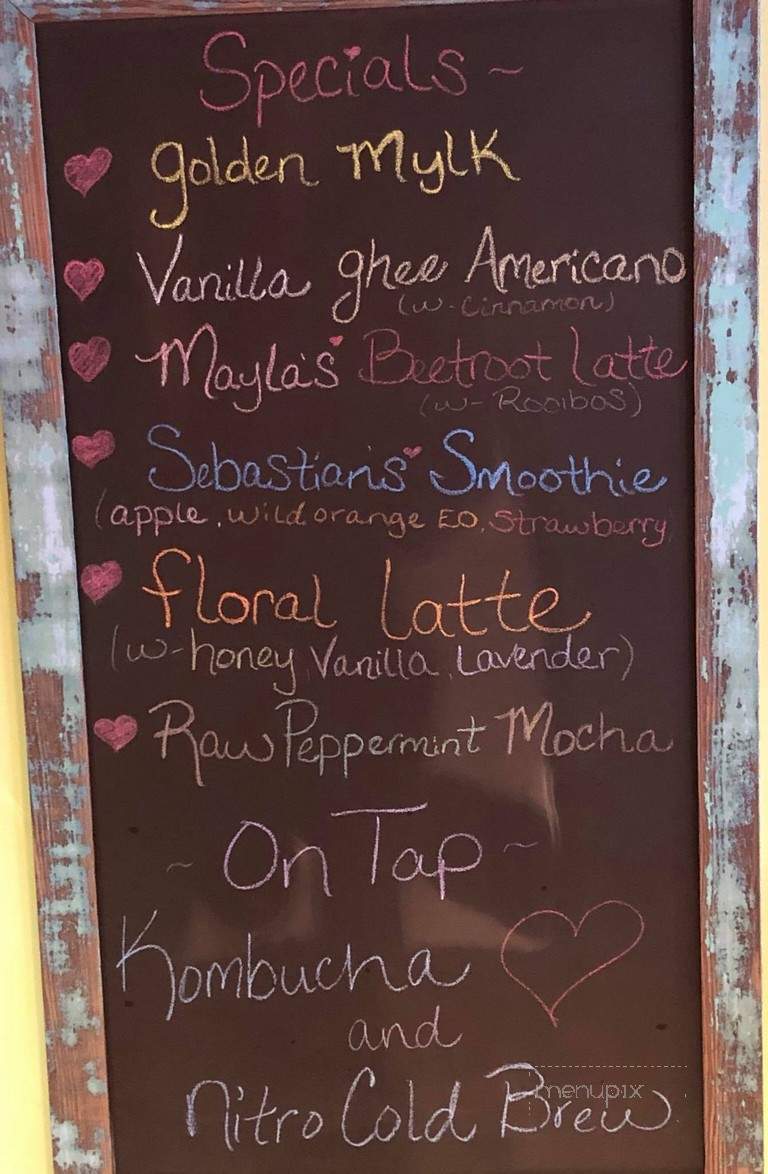 Specials ~
golden Mylk
Vanilla ghee Americano
(w- Cinnamon)
Mayla's Beetroot Latte
(w- Rooibos)
Sebastian's Smoothie
(apple, wild orange EO, Strawberry)
floral latte
(w- honey, Vanilla, Lavender)
Raw Peppermint Mocha
~ On Tap ~
Kombucha
and
Nitro Cold Brew
menupix